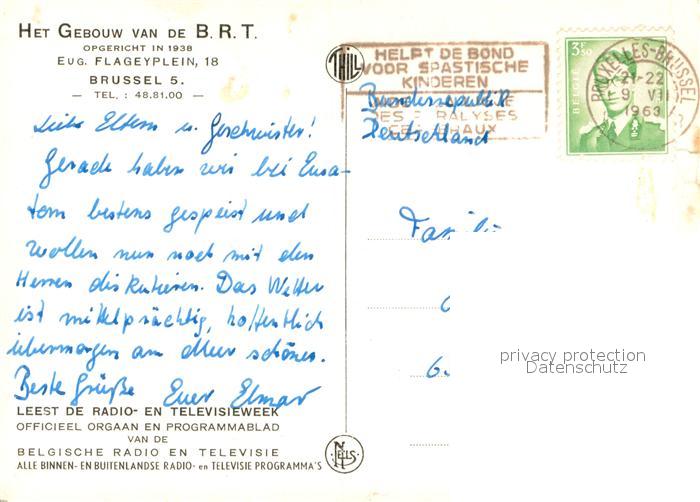 HET GEBOUW VAN DE B.R.T.
OPGERICHT IN 1938
EUG. FLAGEYPLEIN, 18
BRUSSEL 5.
— TEL. : 48.81.00 —
Liebe Eltern u. Geschwister!
Gerade haben wir bei Eura-
tom bestens gespeist und
wollen nun noch mit den
Herren diskutieren. Das Wetter
ist mittelprächtig, hoffentlich
übermorgen am Meer schönes.
Beste Grüße Euer Elmar
LEEST DE RADIO- EN TELEVISIEWEEK
OFFICIEEL ORGAAN EN PROGRAMMABLAD
VAN DE
BELGISCHE RADIO EN TELEVISIE
ALLE BINNEN- EN BUITENLANDSE RADIO- en TELEVISIE PROGRAMMA'S
THILL
NELS
HELPT DE BOND
VOOR SPASTISCHE
KINDEREN
Bundesrepublik
Deutschland
3F50
BELGIE
BRUXELLES-BRUSSEL
21-22
9 VII
1963
privacy protection
Datenschutz